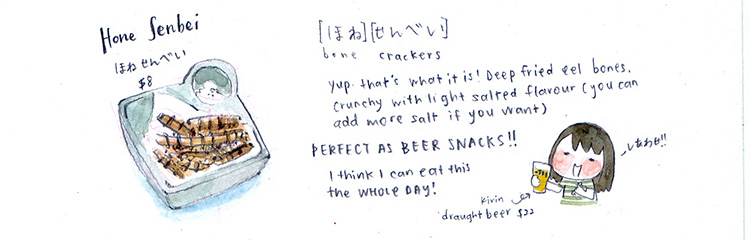 Hone Senbei
ほねせんべい
$8
[ほね][せんべい]
bone crackers
Yup that's what it is! Deep fried eel bones.
crunchy with light salted flavour (you can
add more salt if you want)
PERFECT AS BEER SNACKS!!
I think I can eat this
the WHOLE DAY!
しあわせ!!
Kirin
draught beer $22